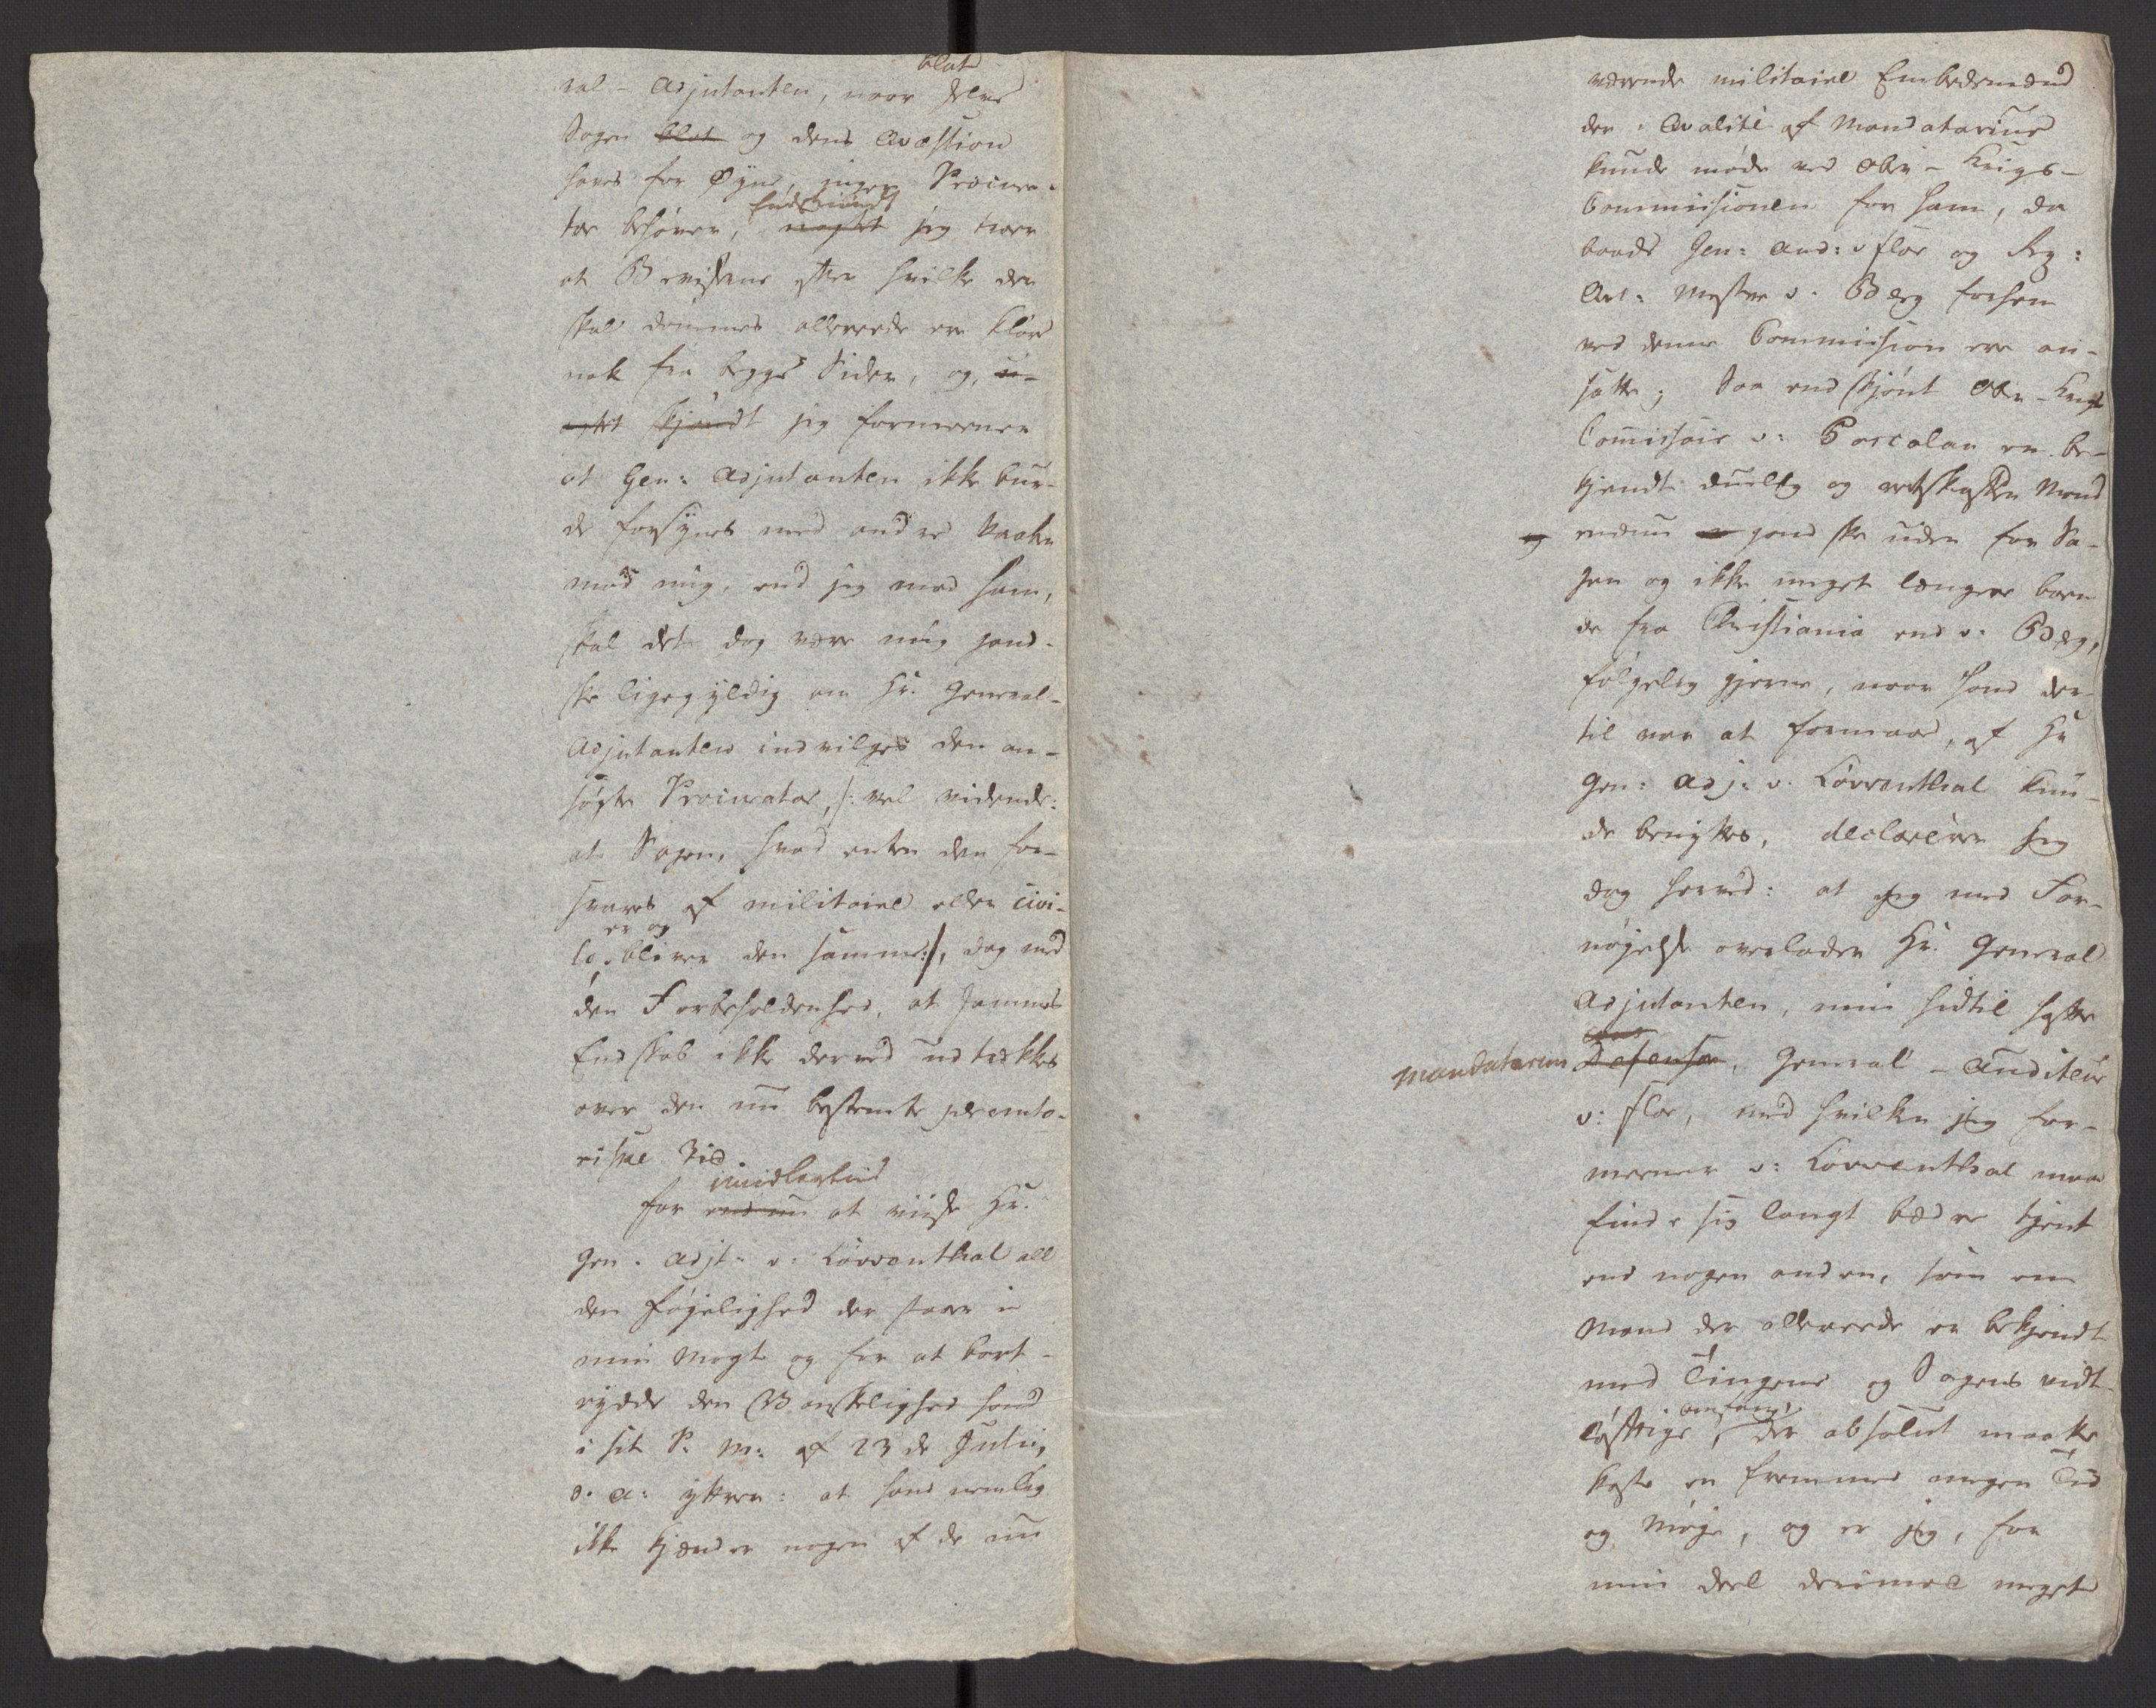 blot
ral-Adjutanten, naar selve
Sagen blot og dens Qvæstion
haves for Øyne, ingen Procura-
tor behøver, endskiøndt uagtet jeg troer
at Beviserne efter hvilke der
skal dømmes allerede ere klare
nok fra begge Sider, og, u-
agtet skjøndt jeg formeener
at Gen: Adjutanten ikke bur-
de forsynes med andre Vaaben
mod mig, end jeg mod ham,
skal det dog være mig gand-
ske ligegyldig om Hr. General-
Adjutanten indvilges den an-
søgte Procurator, /: vel vidende:
at Sagen, hvad enten den for-
svares af militaire eller civi-
le, er og bliver den samme :/, dog med
den Forbeholdenhed, at sammes
Endskab ikke derved udtrækkes
over den nu bestemte peremto-
riske Tid
For imidlertid endnu at viise Hr.
Gen. Adjt. v: Løventhal all
den Føjelighed der staar i
min Magt og for at bort-
rydde den Vanskelighed hand
i sit P. M: af 23de Julii,
d. a: yttrer: at hand nemlig
ikke kjender nogen af de nu
værende militaire Embedsmænd
der i Qvalité af Mandatarius
kunde møde ved Ober-Krigs-
Commissionen for ham, da
baade Gen: Aud: v Flor og Reg:
Qvt: Mester v. Berg forhen
ved denne Commission ere an-
satte; Saa endskjønt Ober-Krigs
Comissair v: Coscalan en be-
kjendt duelig og retskaffen Mand
og endnu gandske uden for Sa-
gen og ikke meget længere bor-
de fra Christiania end v: Berg,
følgelig gjerne, naar hand der-
til var at formaae, af Hr
Gen: Adj: v. Løventhal kun-
de benyttes, declarerer jeg
dog herved: at jeg med For-
nøjelse overlader Hr. General
Adjutanten, min hidtil hafte
mandatarium Defensor, General-Auditeur
v: Flor, med hvilken jeg for-
meener v: Løventhal maae
finde sig langt bedre tjent
end nogen anden, som en
Mand der allerede er bekjendt
med Tingene og Sagens vidt-
løftige omfang, der absolut maatte
koste en fremmed megen Tid
og Møje, og er jeg, for
min deel derimod meget